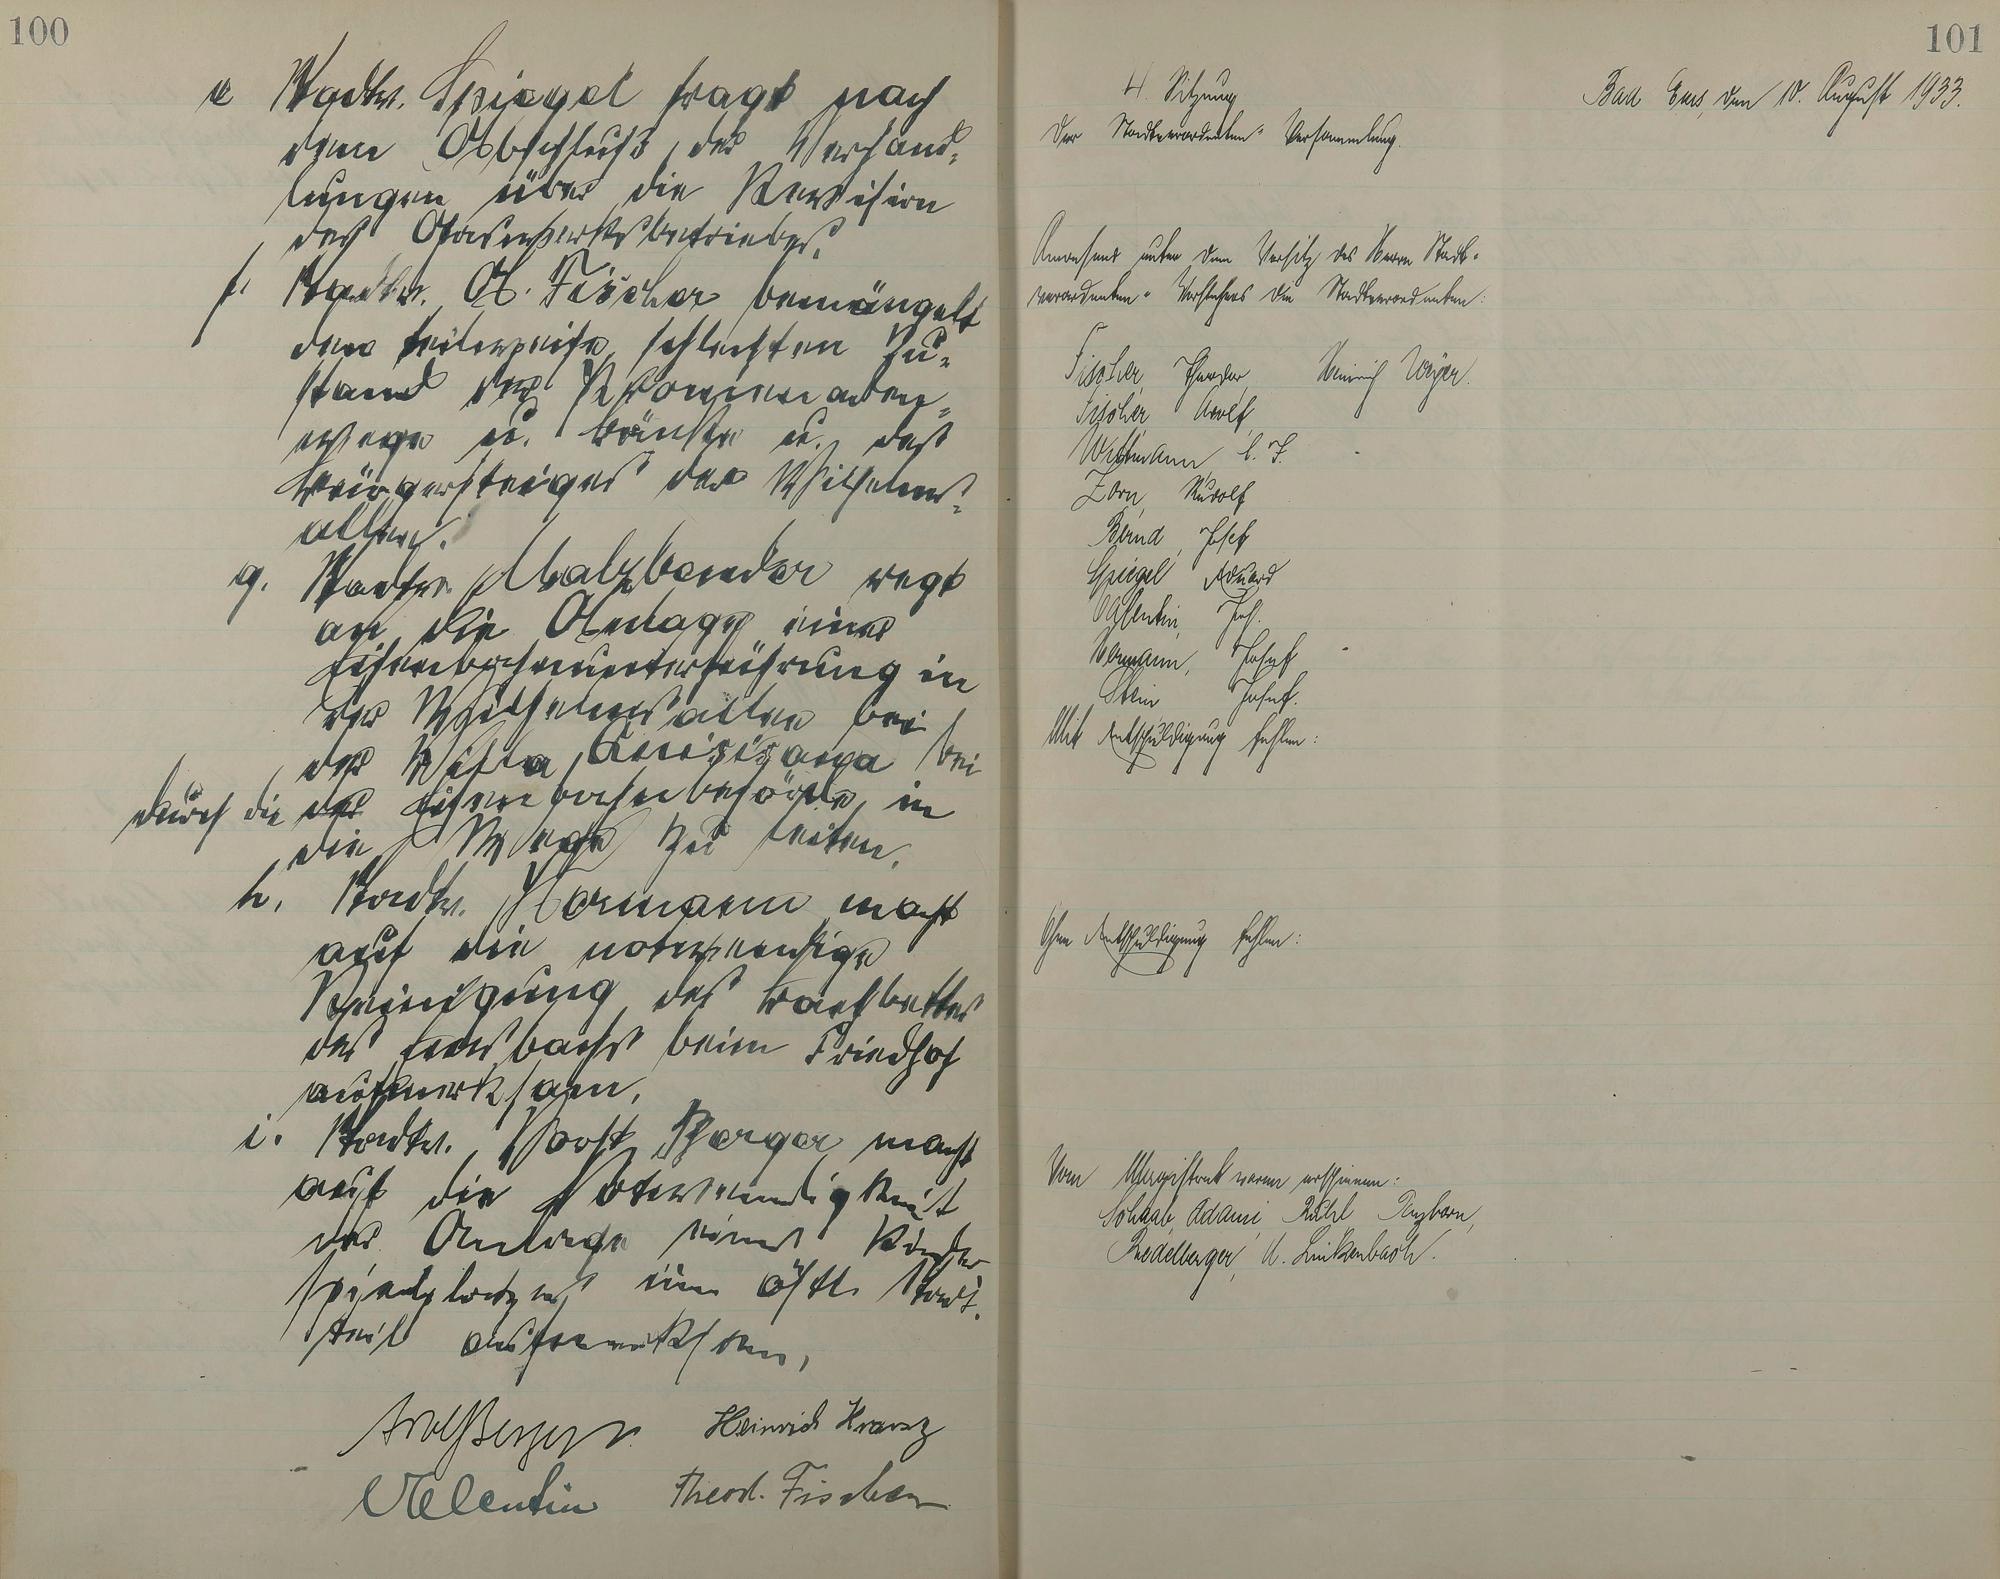 100
e Stadtv. Spiegel fragt nach
dem Abschluß der Verhand-
lungen über die Revision
des Gaswerksbetriebes.
f. Stadtv. A. Fischer bemängelt
den teilweise schlechten Zu-
stand der Promenaden-
wege u. Bänke u. des
Bürgersteiges der Wilhelms-
allee.
g. Stadtv. Malzbender regt
an, die Anlage einer
Eisenbahnunterführung in
der Wilhelmsallee bei
der Villa bei
durch die der Eisenbahnbehörde in
die Wege zu leiten.
h. Stadtv. Normann macht
auf die notwendige
Reinigung des Bachbettes
des Emsbachs beim Friedhof
aufmerksam.
i. Stadtv. Vorst. Berger macht
auf die Notwendigkeit
der Anlage eines Kinder
spielplatzes im östl. Stadt-
teil aufmerksam.
Adolf Berger Heinrich
Valentin Theod. Fischer
101
4 Sitzung
der Stadtverordneten-Versammlung.
Bad Ems, den 10. August 1933.
Anwesend unter dem Vorsitz des Herrn Stadt-
verordneten-Vorstehers die Stadtverordneten:
Fischer, Theodor Heinrich
Fischer Adolf
Wittmann, C. F.
Zorn, Rudolf
Bernd, Josef
Spiegel Eduard
Valentin, Joh.
Normann, Josef
Stein Josef.
Mit Entschuldigung fehlen:
Ohne Entschuldigung fehlen:
Vom Magistrat waren erschienen:
Schaab, Adami, Rühl
Riedelberger, A. Linkenbach.